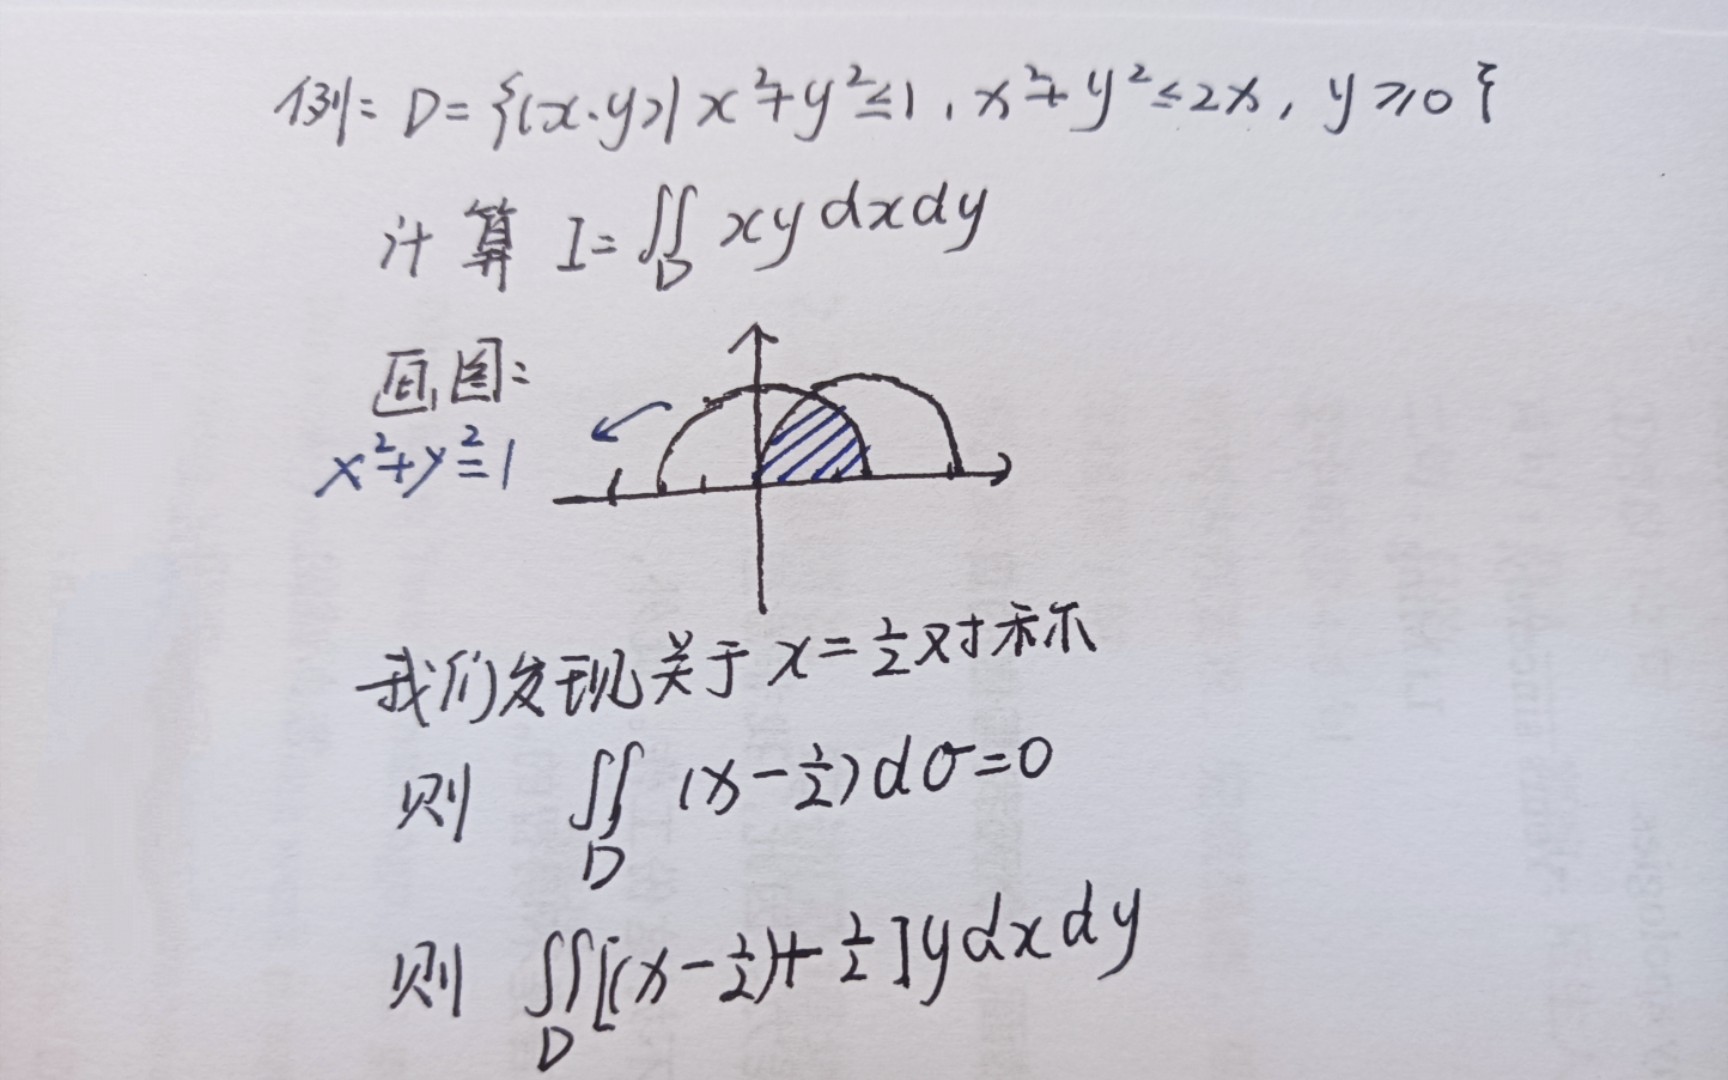 例: D={(x.y)| x²+y²≤1, x²+y²≤2x, y≥0}
计算 I=∬_D xydxdy
画图:
x²+y²=1
我们发现关于x=1/2对称
则 ∬_D (x-1/2)dσ=0
则 ∬_D [(x-1/2)+1/2]ydxdy